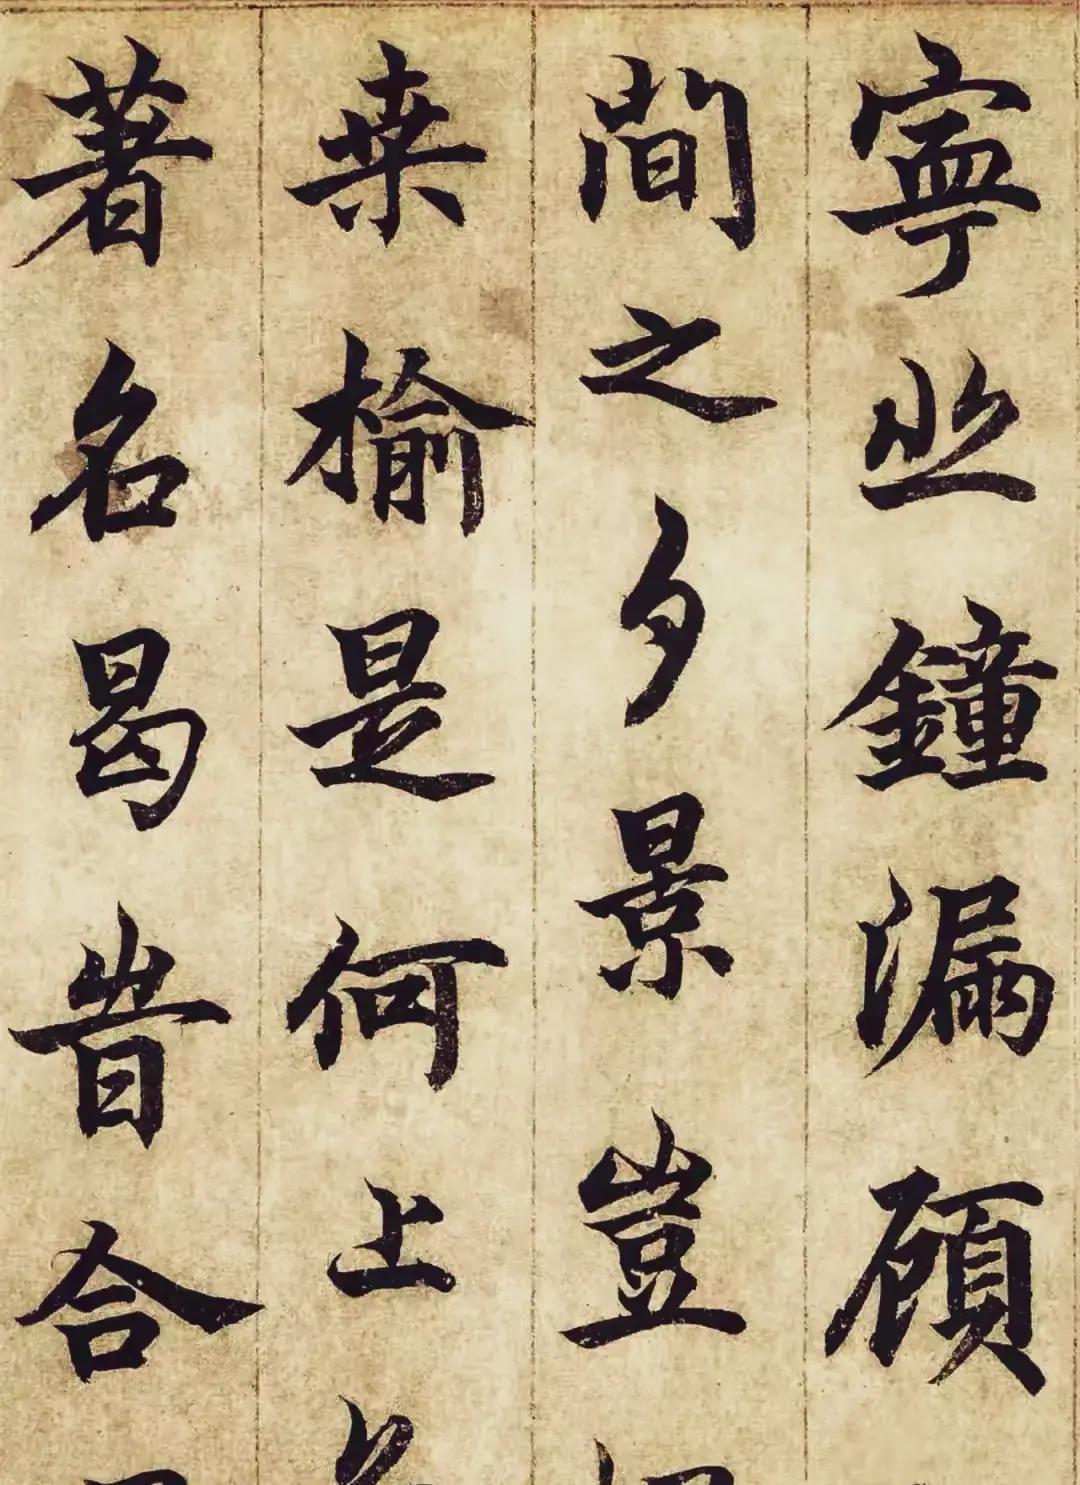 寧丠鐘漏顧
間之夕景豈
桒榆是何上
著名曷旹合